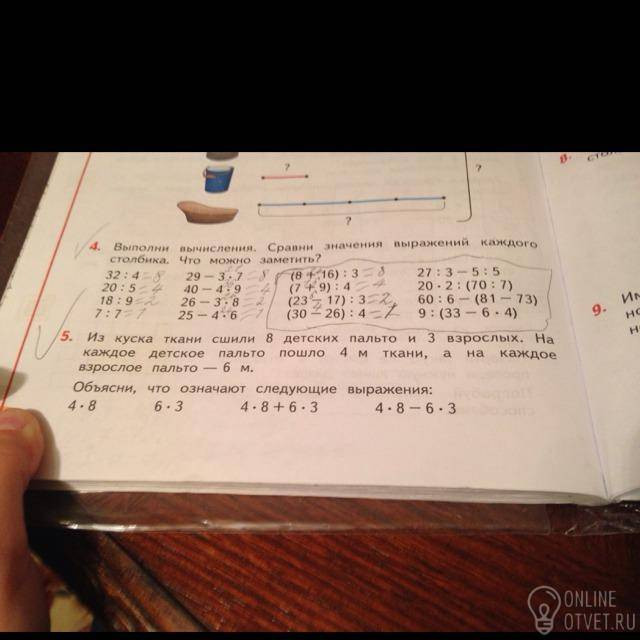 ?
?
?
4. Выполни вычисления. Сравни значения выражений каждого
столбика. Что можно заметить?
32 : 4 = 8 29 − 3 · 7 = 8 (8 + 16) : 3 = 8 27 : 3 − 5 : 5
20 : 5 = 4 40 − 4 · 9 = 4 (7 + 9) : 4 = 4 20 · 2 : (70 : 7)
18 : 9 = 2 26 − 3 · 8 = 2 (23 − 17) : 3 = 2 60 : 6 − (81 − 73)
7 : 7 = 1 25 − 4 · 6 = 1 (30 − 26) : 4 = 1 9 : (33 − 6 · 4)
5. Из куска ткани сшили 8 детских пальто и 3 взрослых. На
каждое детское пальто пошло 4 м ткани, а на каждое
взрослое пальто — 6 м.
Объясни, что означают следующие выражения:
4 · 8 6 · 3 4 · 8 + 6 · 3 4 · 8 − 6 · 3
8.
9.
ONLINE
OTVET.RU